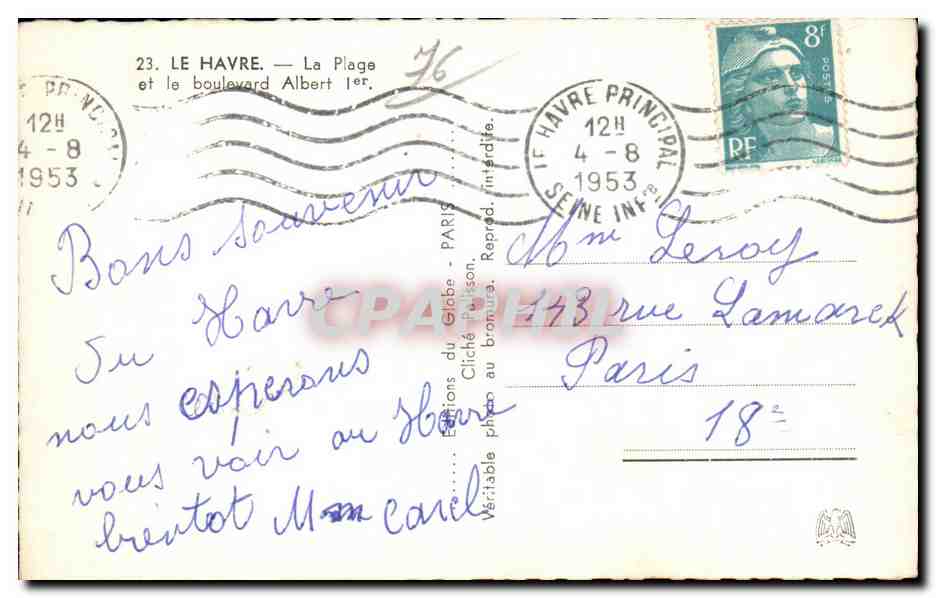 23. LE HAVRE. — La Plage
et le boulevard Albert Ier.
76
12H
4 - 8
1953
LE HAVRE PRINCIPAL
12H
4 - 8
1953
SEINE INFRE
8F
POSTES
RF
Bons souvenir
du Havre
nous esperons
vous voir au Havre
bientot M
Editions du Globe - PARIS
Cliché Pelisson.
Véritable photo au bromure. Reprod. interdite.
Mme Leroy
143 rue Lamarck
Paris
18e
CPAPHIL